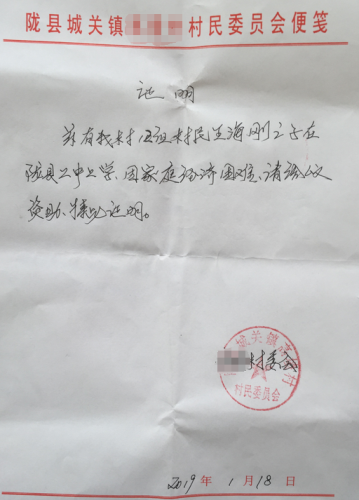 陇县城关镇 村民委员会便笺
证明
兹有我村四组村民王海刚之子在
陇县二中上学、因家庭经济困难、请给以
资助、特此证明。
城关镇 村
村委会
村民委员会
2019年1月18日